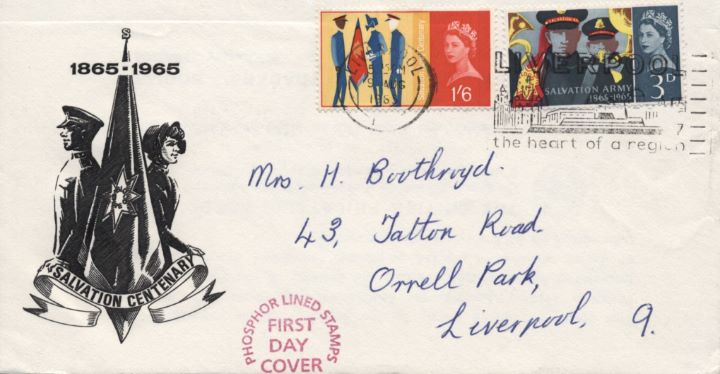 S
1865-1965
SALVATION CENTENARY
1'6
SALVATION ARMY
1865-1965
3D
LIVERPOOL
the heart of a region
Mrs. H. Boothroyd.
43, Tatton Road.
Orrell Park,
Liverpool, 9.
PHOSPHOR LINED STAMPS
FIRST
DAY
COVER